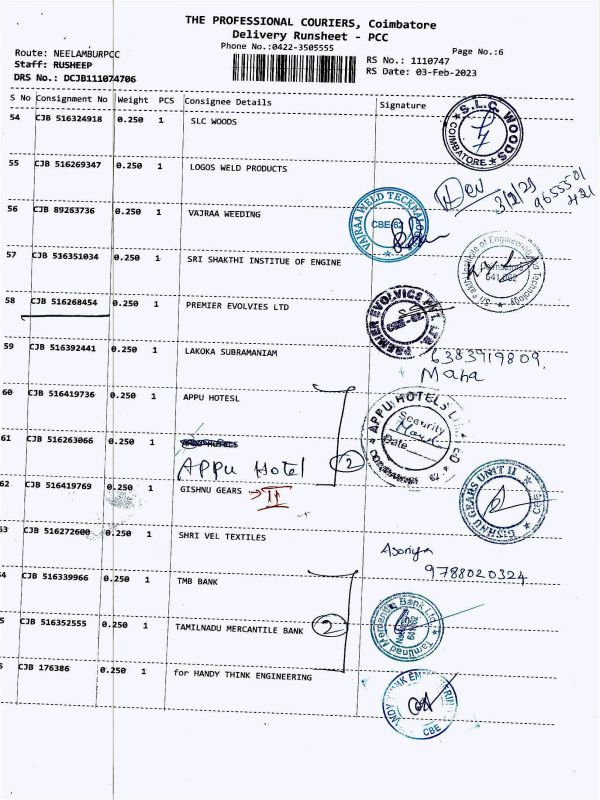 THE PROFESSIONAL COURIERS, Coimbatore
Delivery Runsheet - PCC
Phone No.:0422-3505555
Page No.:6
Route: NEELAMBURPCC
Staff: RUSHEEP
DRS No.: DCJB111074706
RS No.: 1110747
RS Date: 03-Feb-2023
S No Consignment No Weight PCS Consignee Details Signature
54 CJB 516324918 0.250 1 SLC WOODS
S.L.C. WOODS
COIMBATORE
55 CJB 516269347 0.250 1 LOGOS WELD PRODUCTS
56 CJB 89263736 0.250 1 VAJRAA WEEDING
CBE-62
57 CJB 516351034 0.250 1 SRI SHAKTHI INSTITUE OF ENGINE
58 CJB 516268454 0.250 1 PREMIER EVOLVIES LTD
PREMIER EVOLVICS PVT. LTD.
59 CJB 516392441 0.250 1 LAKOKA SUBRAMANIAM
6383919809.
Maha
60 CJB 516419736 0.250 1 APPU HOTESL
APPU HOTELS LTD
Security
Date
61 CJB 516263066 0.250 1
APPU Hotel
2
62 CJB 516419769 0.250 1 GISHNU GEARS → II
GISHNU GEARS UNIT II
CBE
53 CJB 516272600 0.250 1 SHRI VEL TEXTILES
9788020324
4 CJB 516339966 0.250 1 TMB BANK
5 CJB 516352555 0.250 1 TAMILNADU MERCANTILE BANK 2
Tamilnad Mercantile Bank Ltd
5 CJB 176386 0.250 1 for HANDY THINK ENGINEERING
CBE